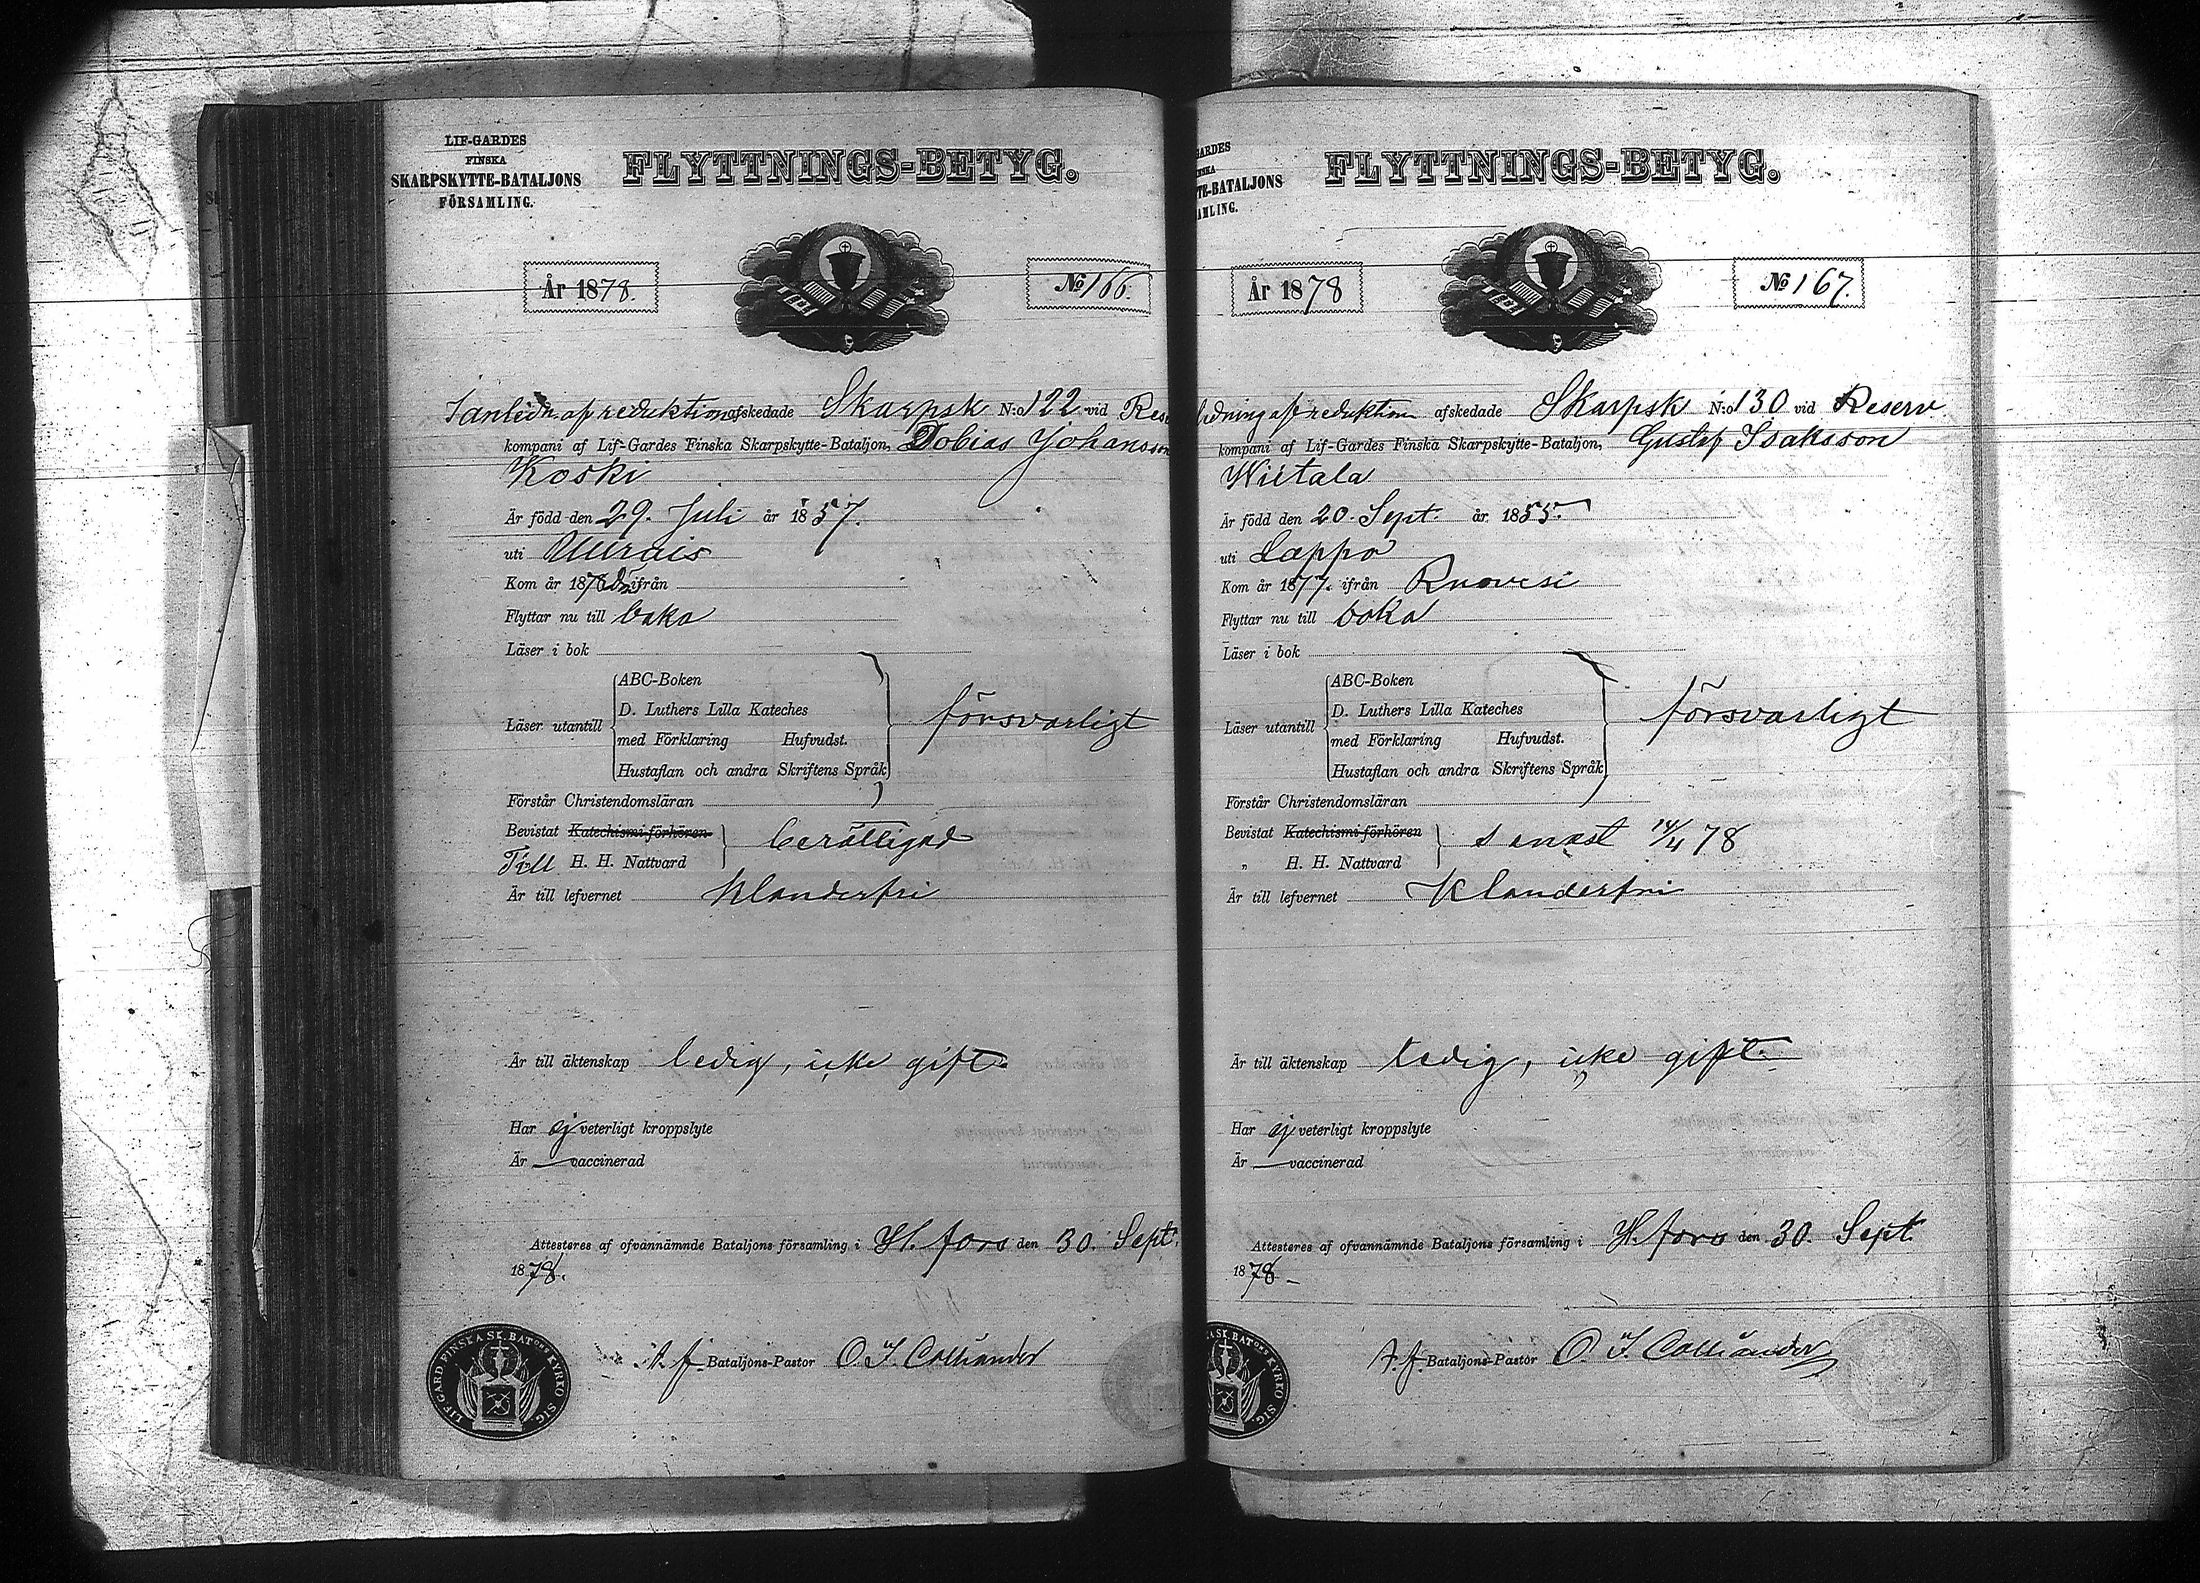 LIF-GARDES
FINSKA
SKARPSKYTTE-BATALJONS
FÖRSAMLING.
FLYTTNINGS-BETYG.
År 1878.
No 166.
af reduktion afskedade Skarpsk N:o 122 vid
kompani af Lif-Gardes Finska Skarpskytte-Bataljon, Tobias Johansson
Koski
Är född den 29. Juli år 1857.
uti
Kom år 187 ifrån
Flyttar nu till baka
Läser i bok
Läser utantill
ABC-Boken
D. Luthers Lilla Kateches
med Förklaring Hufvudst.
Hustaflan och andra Skriftens Språk
försvarligt
Förstår Christendomsläran
Bevistat Katechismi-förhören
Till H. H. Nattvard
berättigad
Är till lefvernet Klanderfri
Är till äktenskap ledig, icke gift.
Har ej veterligt kroppslyte
Är — vaccinerad
Attesteras af ofvannämnde Bataljons församling i H.fors den 30. Sept.
1878.
LIF-GARD FINSKA SK. BATONS KYRKO SIG.
A. f. Bataljons-Pastor O. I. Colliander
GARDES
TE-BATALJONS
AMLING.
FLYTTNINGS-BETYG.
År 1878
No 167.
ledning af reduktion afskedade Skarpsk N:o 130 vid Reserv
kompani af Lif-Gardes Finska Skarpskytte-Bataljon, Gustaf Isaksson
Wiitala
Är född den 20. Sept. år 1855.
uti Lappo
Kom år 1877. ifrån Ruovesi
Flyttar nu till baka
Läser i bok
Läser utantill
ABC-Boken
D. Luthers Lilla Kateches
med Förklaring Hufvudst.
Hustaflan och andra Skriftens Språk
försvarligt
Förstår Christendomsläran
Bevistat Katechismi-förhören
„ H. H. Nattvard
senast 14/4 78
Är till lefvernet Klanderfri
Är till äktenskap ledig, icke gift.
Har ej veterligt kroppslyte
Är — vaccinerad
Attesteras af ofvannämnde Bataljons församling i H.fors den 30. Sept.
1878
A SK. BATONS KYRKO SIG.
A. f. Bataljons-Pastor O. I. Colliander